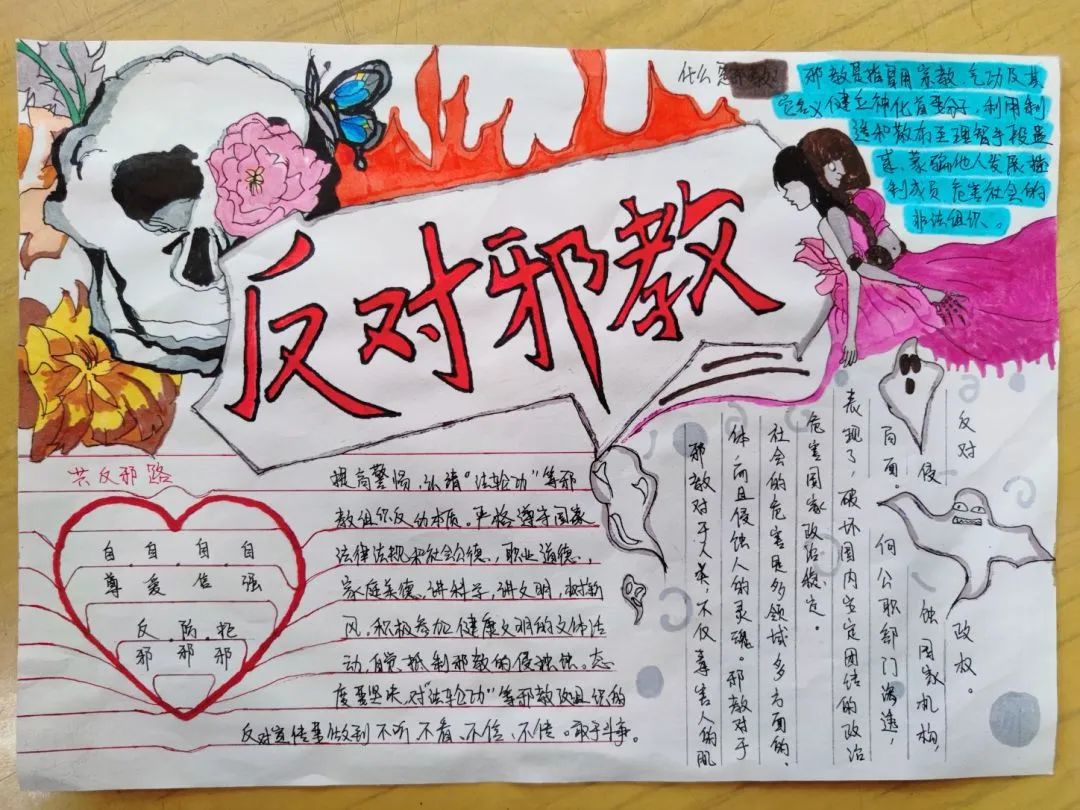 反对邪教
什么是邪教?
邪教是指冒用宗教、气功及其
它名义建立神化首要分子,利用制
造和散布歪理邪说等手段蛊
惑、蒙骗他人发展控
制成员 危害社会的
非法组织。
共反邪路
自 自 自 自
尊 爱 信 强
反 防 拒
邪 邪 邪
提高警惕,认清“法轮功”等邪
教组织反动本质。严格遵守国家
法律法规和社会公德、职业道德、
家庭美德。讲科学,讲文明,树新
风,积极参加健康文明的文体活
动,自觉抵制邪教的侵蚀。态
度要坚决,对“法轮功”等邪教组织的
反对宣传要做到 不听 不看、不信、不传。敢于斗争。
反对
政权。
侵
蚀国家机构,
向公职部门渗透,
两面。
表现了,破坏国内安定团结的政治
危害国家政治稳定。
社会的危害是多领域多方面的,
体,而且侵蚀人的灵魂。邪教对于
邪教对于人类,不仅毒害人的肌